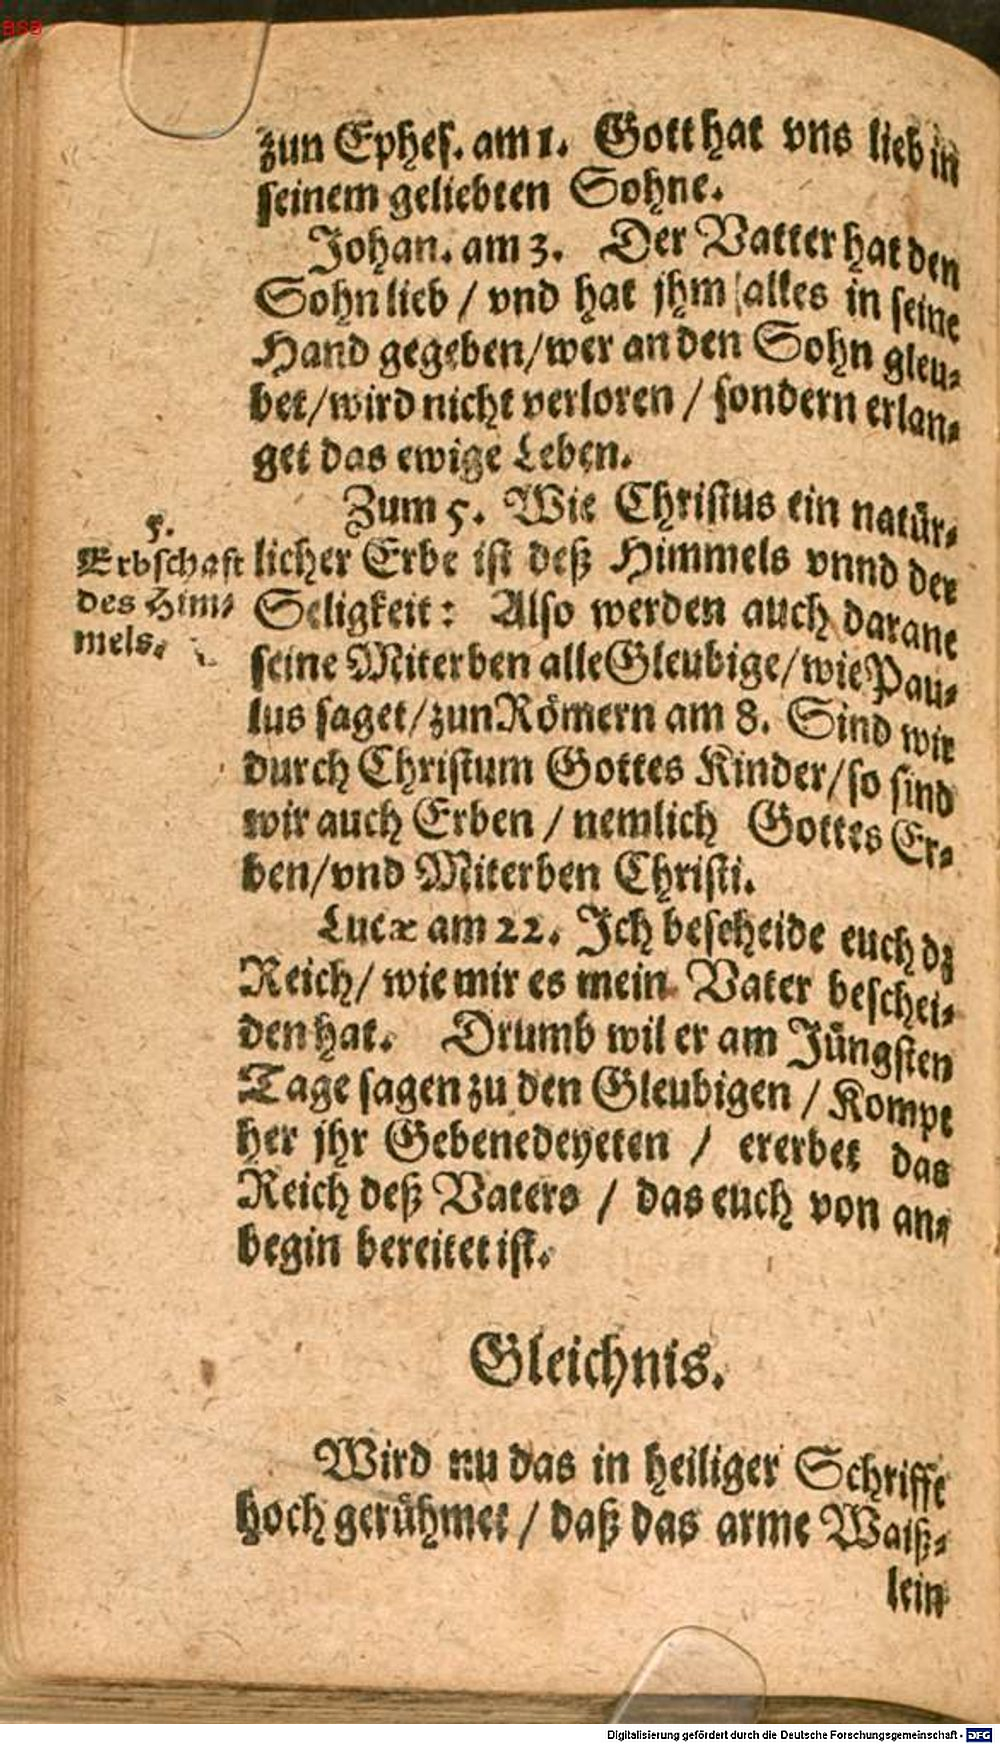 asa
zun Ephes. am 1. Gott hat vns lieb in
seinem geliebten Sohne.
Johan. am 3. Der Vatter hat den
Sohn lieb / vnd hat jhm alles in seine
Hand gegeben / wer an den Sohn gleu-
bet / wird nicht verloren / sondern erlan-
get das ewige Leben.
5.
Erbschaft
des Him-
mels.
Zum 5. Wie Christus ein natür-
licher Erbe ist deß Himmels vnnd der
Seligkeit: Also werden auch darane
seine Miterben alle Gleubige / wie Pau-
lus saget / zun Römern am 8. Sind wir
durch Christum Gottes Kinder / so sind
wir auch Erben / nemlich Gottes Er-
ben / vnd Miterben Christi.
Lucæ am 22. Ich bescheide euch dz
Reich / wie mir es mein Vater beschei-
den hat. Drumb wil er am Jüngsten
Tage sagen zu den Gleubigen / Kompt
her jhr Gebenedeyeten / ererbet das
Reich deß Vaters / das euch von an-
begin bereitet ist.
Gleichnis.
Wird nu das in heiliger Schrifft
hoch gerühmet / daß das arme Waiß-
lein
Digitalisierung gefördert durch die Deutsche Forschungsgemeinschaft - DFG